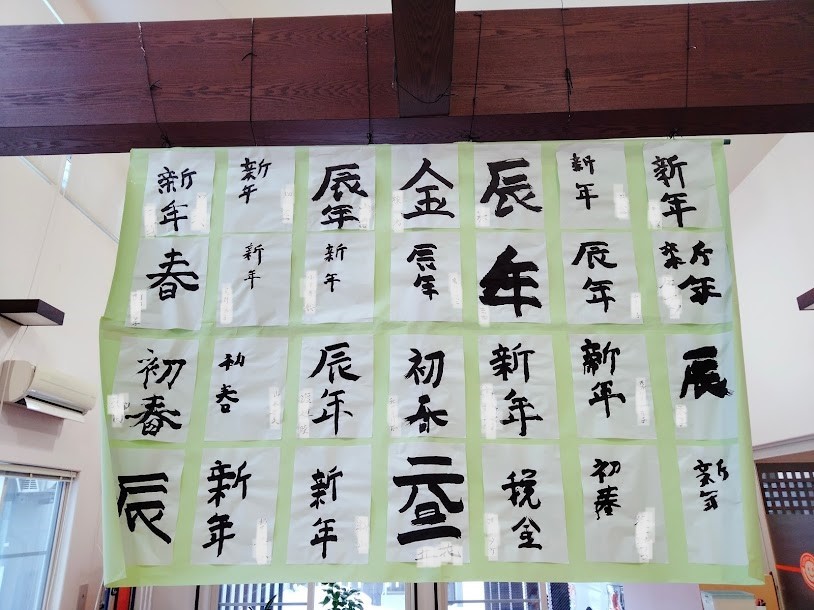 新年
新年
辰年
金
辰
新年
新年
春
新年
新年
辰年
年
辰年
新年
初春
初春
辰年
初春
新年
新年
辰
辰
新年
新年
元旦
税金
初春
新年